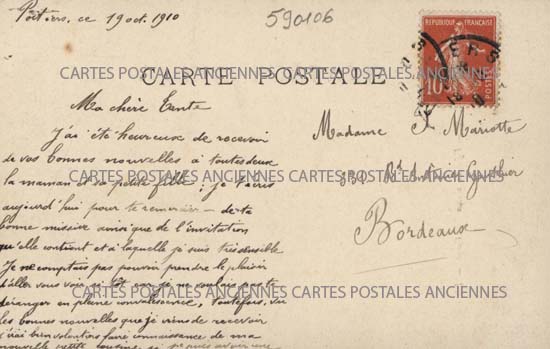 Poitiers, ce 19 oct. 1910
590106
REPUBLIQUE FRANÇAISE
10
CARTES POSTALES ANCIENNES CARTES POSTALES ANCIENNES
CARTE POSTALE
Ma chère Tante
J'ai été heureuse de recevoir
de vos bonnes nouvelles à toutes deux
la maman et sa petite fille ; je t'écris
aujourd'hui pour te remercier de ta
bonne missive ainsi que de l'invitation
qu'elle contient et à laquelle je suis très sensible
Je ne comptais pas pouvoir prendre le plaisir
d'aller vous voir
en pleine convalescence, toutefois, vu
les bonnes nouvelles que je viens de recevoir
j'irai bien volontiers faire connaissance de ma
nouvelle petite cousine si je puis avoir une
Madame J. Mariotte
CARTES POSTALES ANCIENNES CARTES POSTALES ANCIENNES
Bd Antoine Gauthier
Bordeaux
CARTES POSTALES ANCIENNES CARTES POSTALES ANCIENNES